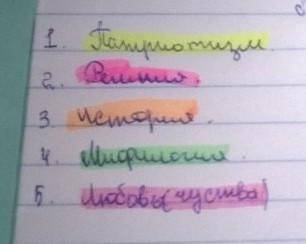 1. Патриотизм.
2. Религия.
3. История.
4. Мифология.
5. Любовь (чуства)